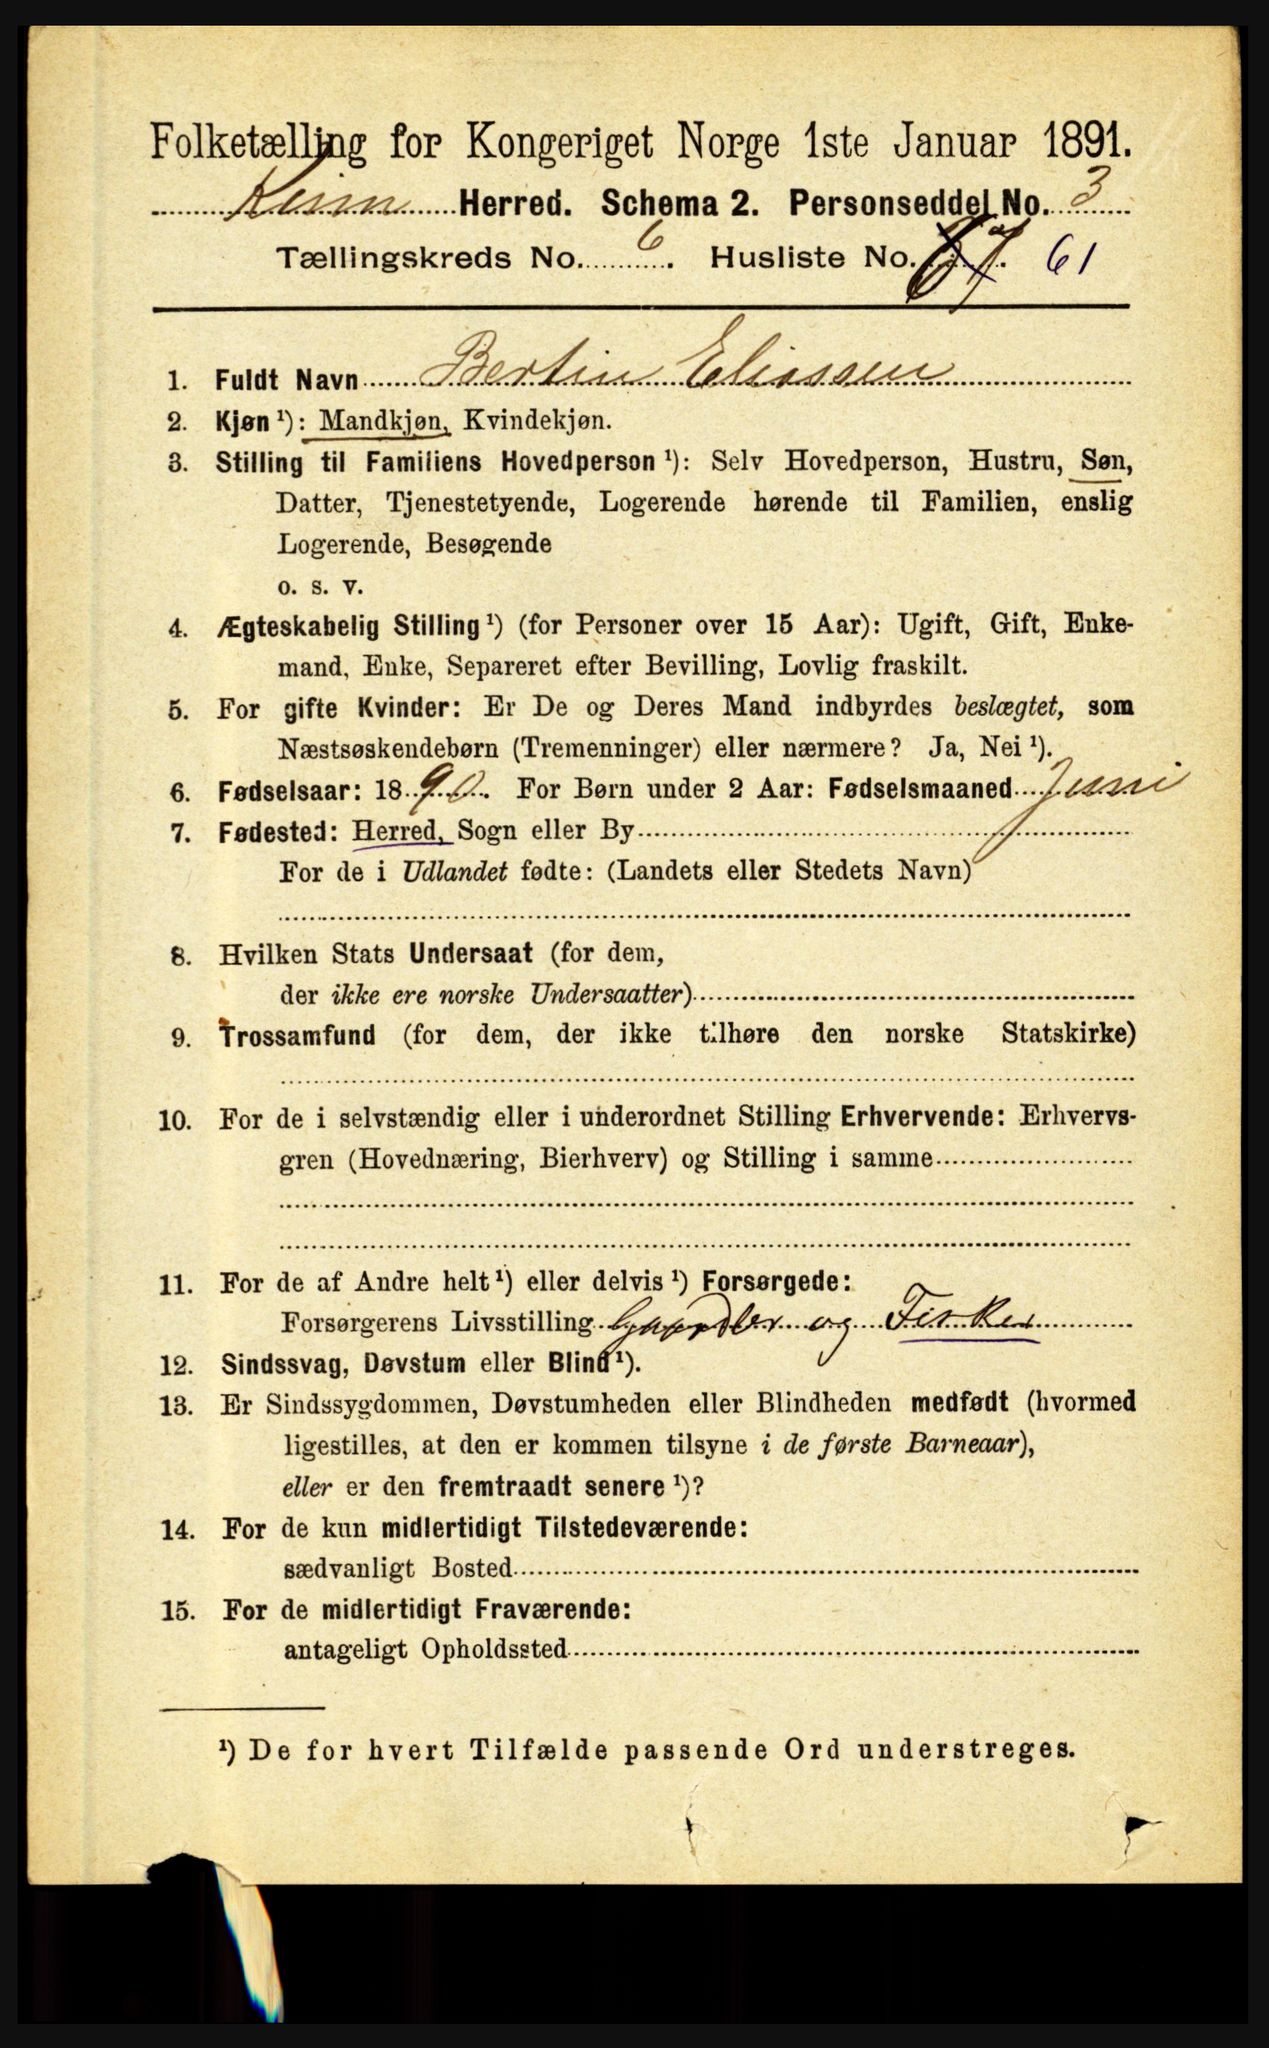 Folketælling for Kongeriget Norge 1ste Januar 1891.
Kinn Herred. Schema 2. Personseddel No. 3
Tællingskreds No. 6. Husliste No. 61
1. Fuldt Navn Bertin Eliassen
2. Kjøn ¹): Mandkjøn, Kvindekjøn.
3. Stilling til Familiens Hovedperson ¹): Selv Hovedperson, Hustru, Søn,
Datter, Tjenestetyende, Logerende hørende til Familien, enslig
Logerende, Besøgende
o. s. v.
4. Ægteskabelig Stilling ¹) (for Personer over 15 Aar): Ugift, Gift, Enke-
mand, Enke, Separeret efter Bevilling, Lovlig fraskilt.
5. For gifte Kvinder: Er De og Deres Mand indbyrdes beslægtet, som
Næstsøskendebørn (Tremenninger) eller nærmere? Ja, Nei ¹).
6. Fødselsaar: 1890. For Børn under 2 Aar: Fødselsmaaned Juni
7. Fødested: Herred, Sogn eller By
For de i Udlandet fødte: (Landets eller Stedets Navn)
8. Hvilken Stats Undersaat (for dem,
der ikke ere norske Undersaatter)
9. Trossamfund (for dem, der ikke tilhøre den norske Statskirke)
10. For de i selvstændig eller i underordnet Stilling Erhvervende: Erhvervs-
gren (Hovednæring, Bierhverv) og Stilling i samme
11. For de af Andre helt ¹) eller delvis ¹) Forsørgede:
Forsørgerens Livsstilling og Fisker
12. Sindssvag, Døvstum eller Blind ¹).
13. Er Sindssygdommen, Døvstumheden eller Blindheden medfødt (hvormed
ligestilles, at den er kommen tilsyne i de første Barneaar),
eller er den fremtraadt senere ¹)?
14. For de kun midlertidigt Tilstedeværende:
sædvanligt Bosted
15. For de midlertidigt Fraværende:
antageligt Opholdssted
¹) De for hvert Tilfælde passende Ord understreges.